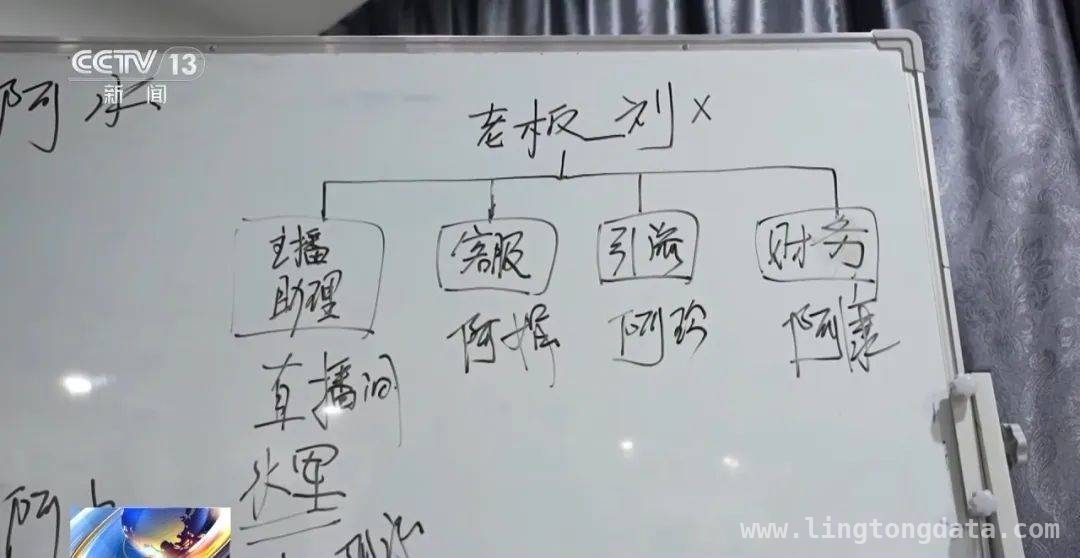 CCTV 13
新闻
阿水
老板 刘X
主播
助理
客服
引流
财务
阿婷
阿珍
阿康
直播间
水军
阿
www.lingtongdata.com